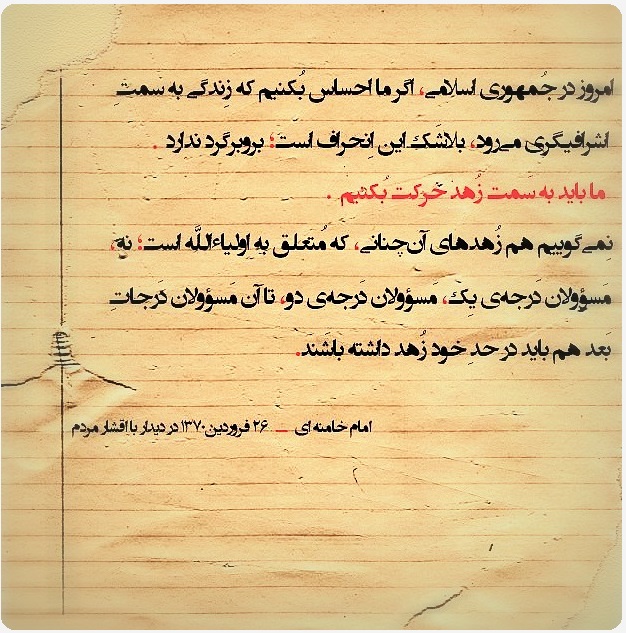 امروز در جُمهوری اسلامی، اگر ما احساس بُکنیم که زندگی به سمتِ
اشرافیگری می‌رود، بلاشَک این اِنحراف است؛ بروبرگرد ندارد .
ما باید به سَمت زُهد حَرکت بُکنیم .
نِمی‌گوییم هم زُهدهای آن‌چنانی، که مُتعلق به اولیاءاللَّه است؛ نه،
مَسؤولان دَرجه‌ی یِک، مَسؤولان دَرجه‌ی دو، تا آن مَسؤولان دَرجات
بَعد هم باید در حدِ خود زُهد داشته باشَند.
امام خامنه ای _ ۲۶ فروردین ۱۳۷۰ در دیدار با اقشار مردم